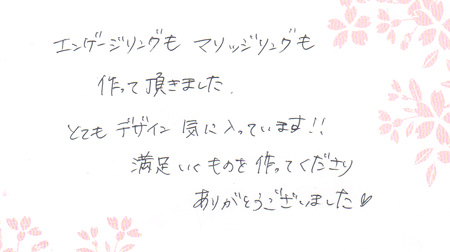 エンゲージリングも マリッジリングも
作って頂きました.
とても デザイン 気に入っています!!
満足いくものを作ってくださり
ありがとうございました♥